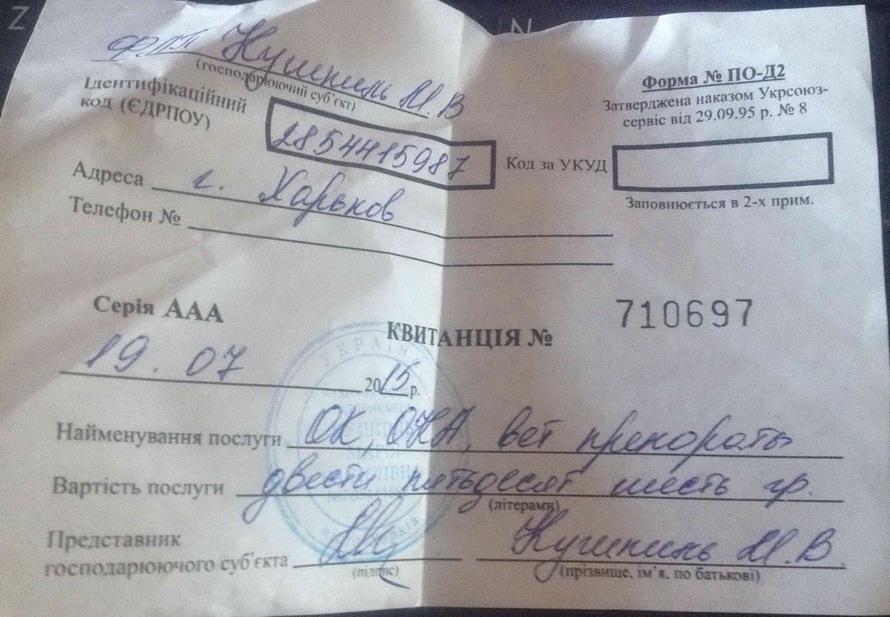 ФЛП Кушпиль М.В
(господарюючий суб'єкт)
Форма № ПО-Д2
Затверджена наказом Укрсоюз-
сервіс від 29.09.95 р. № 8
Ідентифікаційний
код (ЄДРПОУ) 2854415987 Код за УКУД
Заповнюється в 2-х прим.
Адреса г. Харьков
Телефон №
Серія ААА
КВИТАНЦІЯ № 710697
19.07 2015 р.
Найменування послуги ОК, ОКА, вет препораты
Вартість послуги двести пятьдесят шесть гр.
(літерами)
Представник
господарюючого суб'єкта Кушпиль М.В
(підпис) (прізвище, ім'я, по батькові)
УКРАЇНА